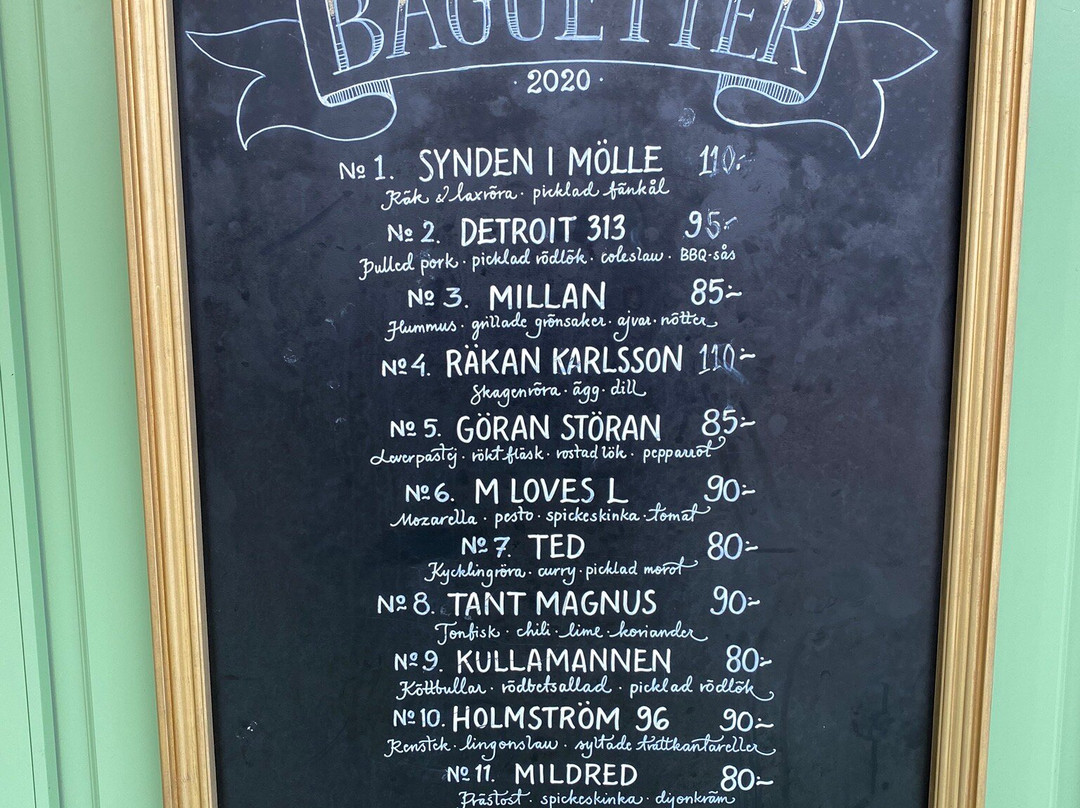 BAGUETTER
· 2020 ·
Nº 1. SYNDEN I MÖLLE 110:-
Räk & laxröra · picklad fänkål
Nº 2. DETROIT 313 95:-
Pulled pork · picklad rödlök · coleslaw · BBQ-sås
Nº 3. MILLAN 85:-
Hummus · grillade grönsaker · ajvar · nötter
Nº 4. RÄKAN KARLSSON 110:-
Skagenröra · ägg · dill
Nº 5. GÖRAN STÖRAN 85:-
Leverpastej · rökt fläsk · rostad lök · pepparrot
Nº 6. M LOVES L 90:-
Mozarella · pesto · spickeskinka · tomat
Nº 7. TED 80:-
Kycklingröra · curry · picklad morot
Nº 8. TANT MAGNUS 90:-
Tonfisk · chili · lime · koriander
Nº 9. KULLAMANNEN 80:-
Köttbullar · rödbetsallad · picklad rödlök
Nº 10. HOLMSTRÖM 96 90:-
Renstek · lingonslaw · syltade trattkantareller
Nº 11. MILDRED 80:-
Prästost · spickeskinka · dijonkräm